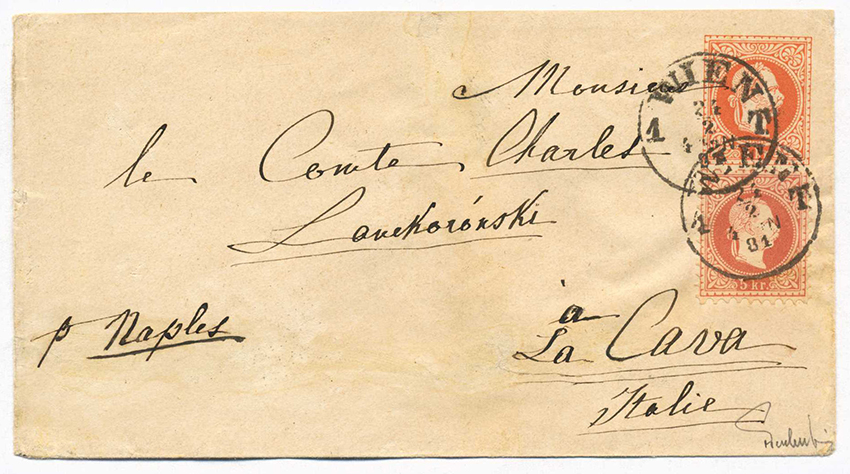 Monsieur
le Comte Charles
Lanckoroński
à
La Cava
Italie
p Naples
WIEN
1 T
24
2
4 N
81
WIEN
1 T
24
2
4 N
81
5 kr.